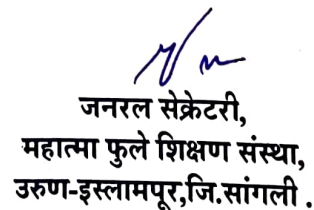 जनरल सेक्रेटरी,
महात्मा फुले शिक्षण संस्था,
उरुण-इस्लामपूर,जि.सांगली .